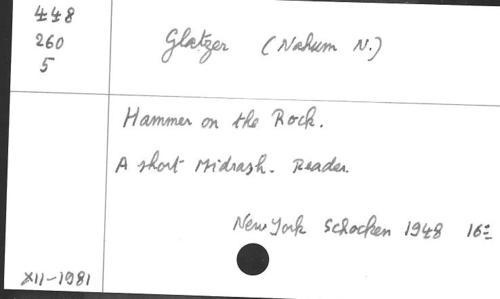 448
260
5
Glatzer (Nahum N.)
Hammer on the Rock.
A short Midrash. Reader.
New York Schocken 1948 16º
XII-1981